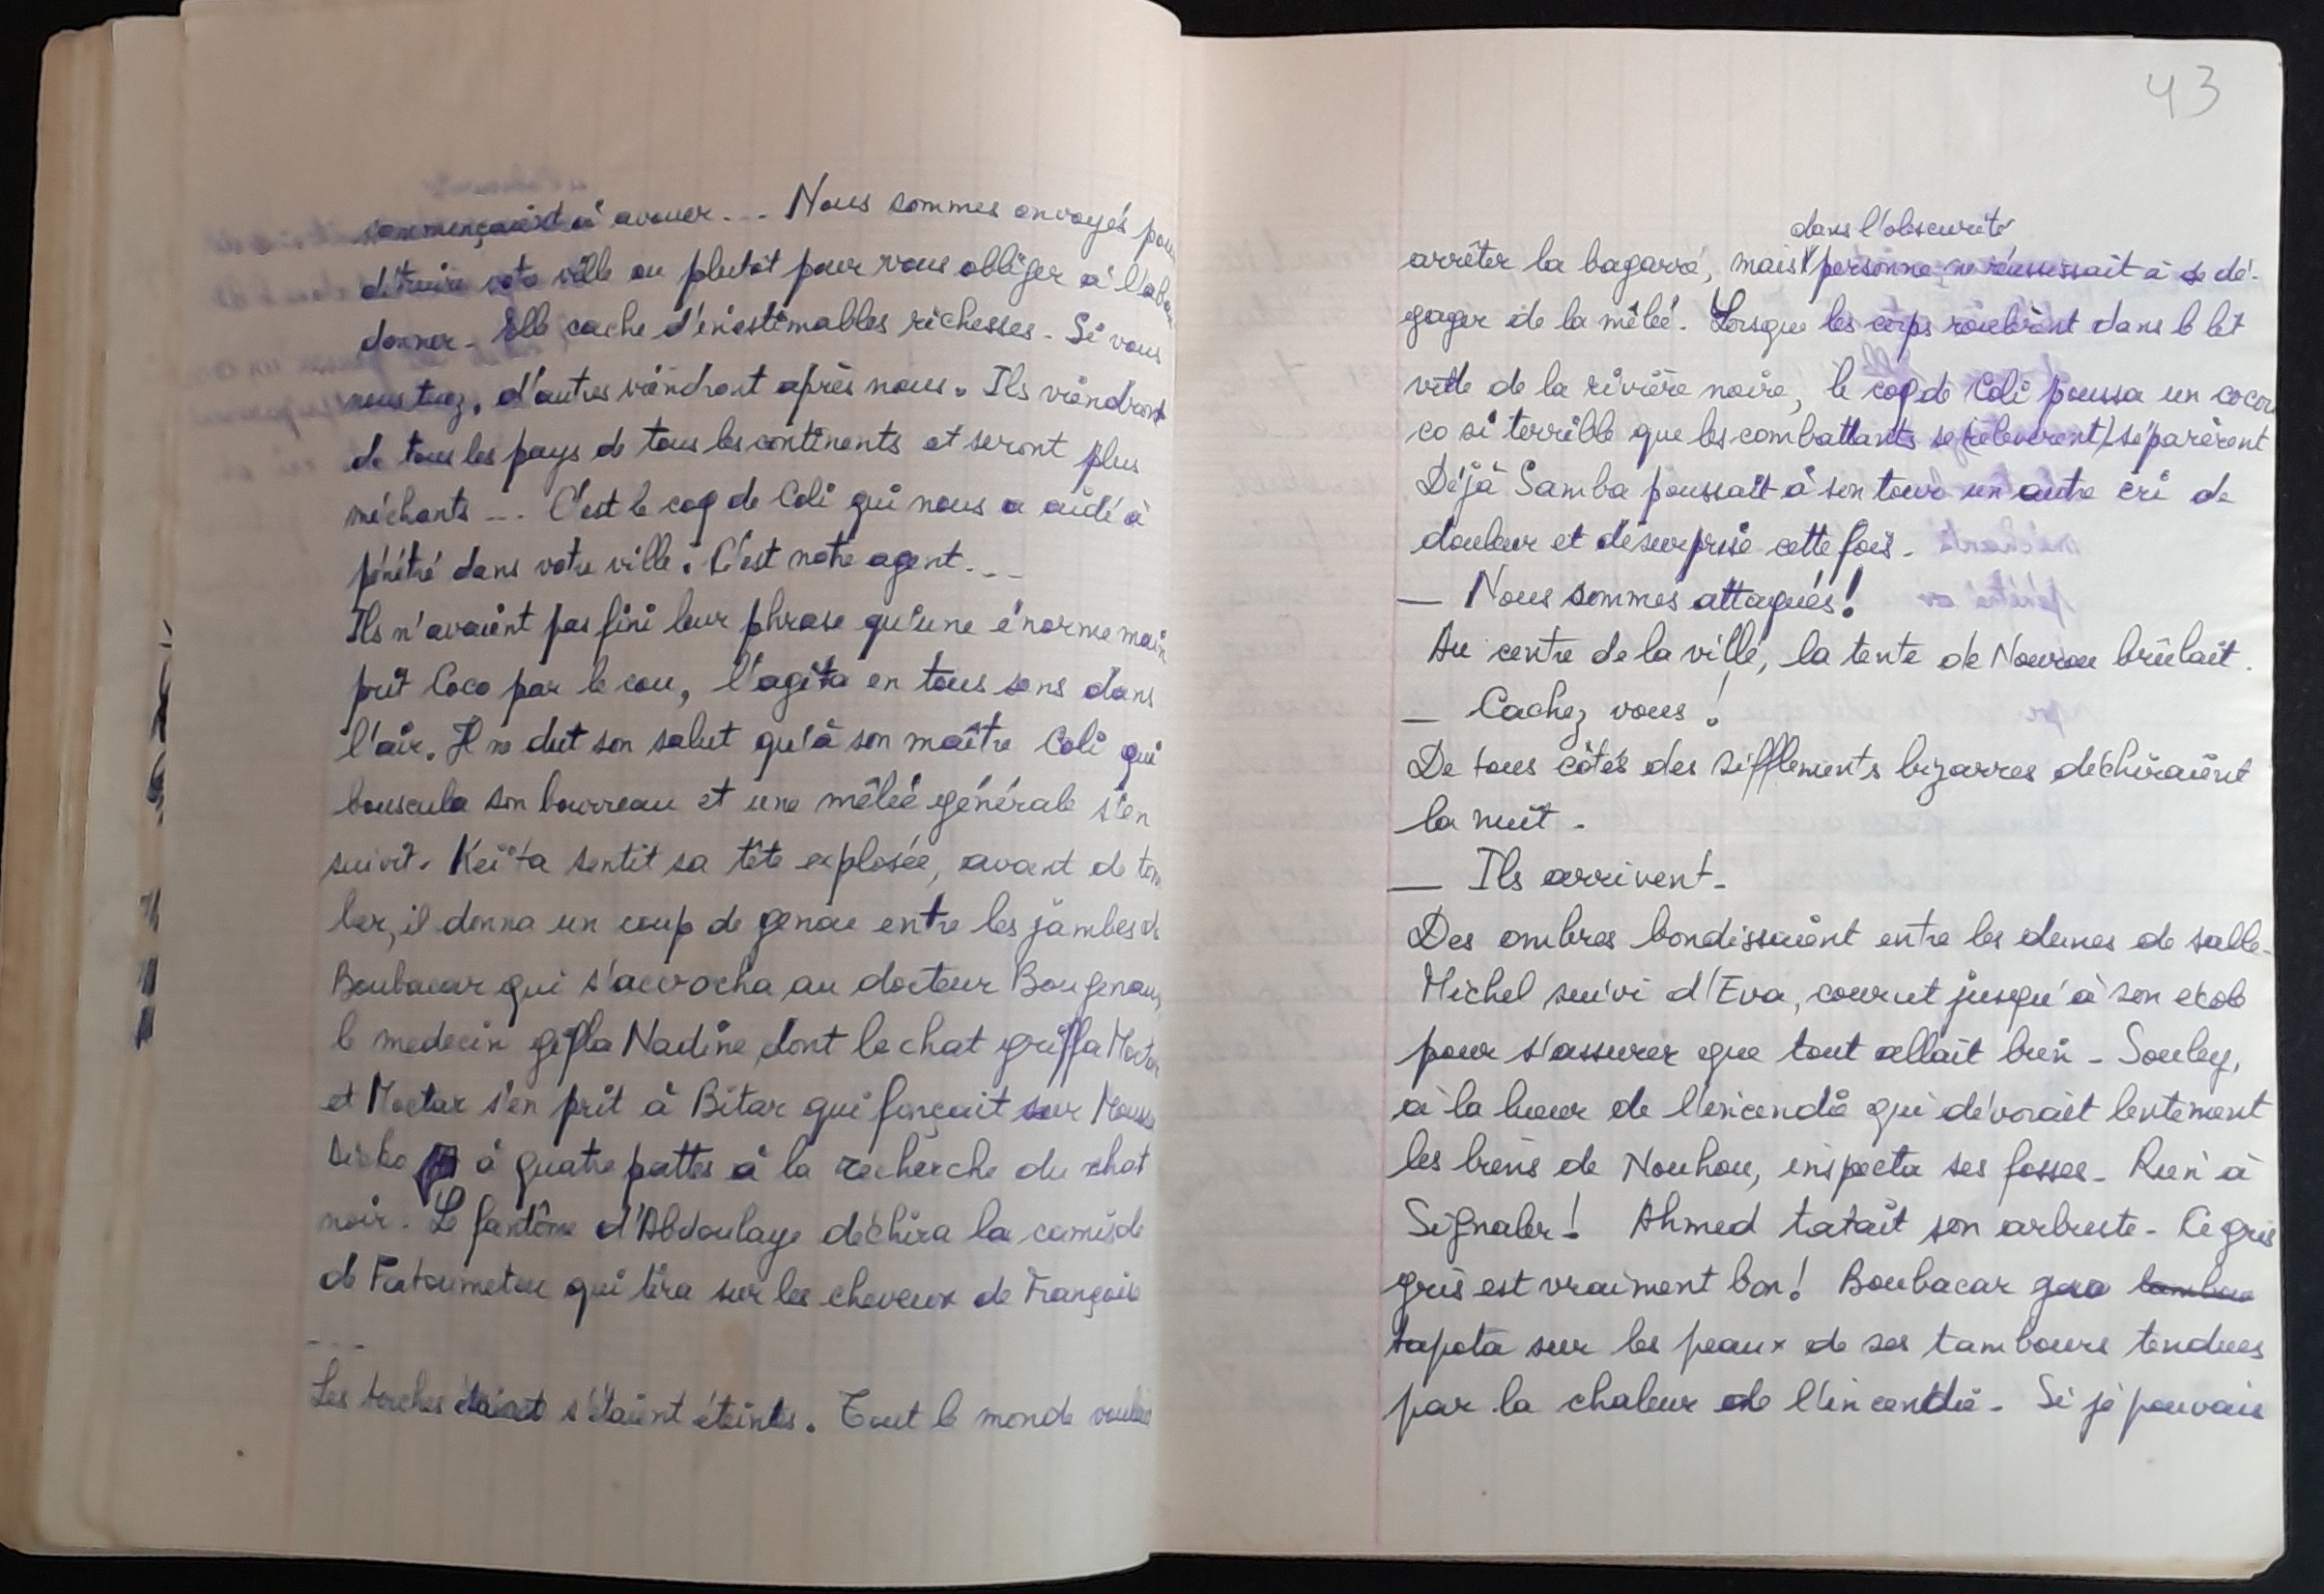 commençaient à avouer... Nous sommes envoyés pour
détruire vote ville ou plutôt pour vous obliger à l'aban
donner. Elle cache d'inestimables richesses. Si vous
nous tuez, d'autres viendront après nous. Ils viendront
de tous les pays de tous les continents et seront plus
méchants... C'est le coq de Coli qui nous a aidé à
pénétré dans votre ville. C'est notre agent...
Ils n'avaient pas fini leur phrase qu'une énorme main
prit Coco par le cou, l'agita en tous sens dans
l'air. Il ne dut son salut qu'à son maître Coli qui
bouscula son bourreau et une mêlée générale s'en
suivit. Keïta sentit sa tête explosée, avant de tom
ber, il donna un coup de genou entre les jambes de
Boubacar qui s'accrocha au docteur Bougenaux,
le medecin gifla Nadine dont le chat griffa Moctar
et Moctar s'en prit à Bitar qui fonçait sur Moussa
à quatre pattes à la recherche du chat
noir. Le fantôme d'Abdoulaye déchira la camisole
de Fatoumatou qui tira sur les cheveux de Françoise
...
Les torches étaient s'étaient éteintes. Tout le monde voulait
43
dans l'obscurité
arrêter la bagarre, mais personne ne réussissait à se dé-
gager de la mêlée. Lorsque les corps roulèrent dans le lit
vide de la rivière noire, le coq de Coli poussa un cocori
co si terrible que les combattants se relevèrent séparèrent
Déjà Samba poussait à son tour un autre cri de
douleur et de surprise cette fois.
— Nous sommes attaqués!
Au centre de la ville, la tente de Nourou brûlait.
— Cachez vous!
De tous côtés des sifflements bizarres déchiraient
la nuit.
— Ils arrivent.
Des ombres bondissaient entre les dunes de sable.
Michel suivi d'Eva, courut jusqu'à son école
pour s'assurer que tout allait bien. Souley,
à la lueur de l'incendie qui dévorait lentement
les biens de Nouhou, inspecta ses fosses. Rien à
Signaler! Ahmed tatait son arbuste. Ce gris
gris est vraiment bon! Boubacar tambou
tapota sur les peaux de ses tambours tendues
par la chaleur de l'incendie. Si je pouvais